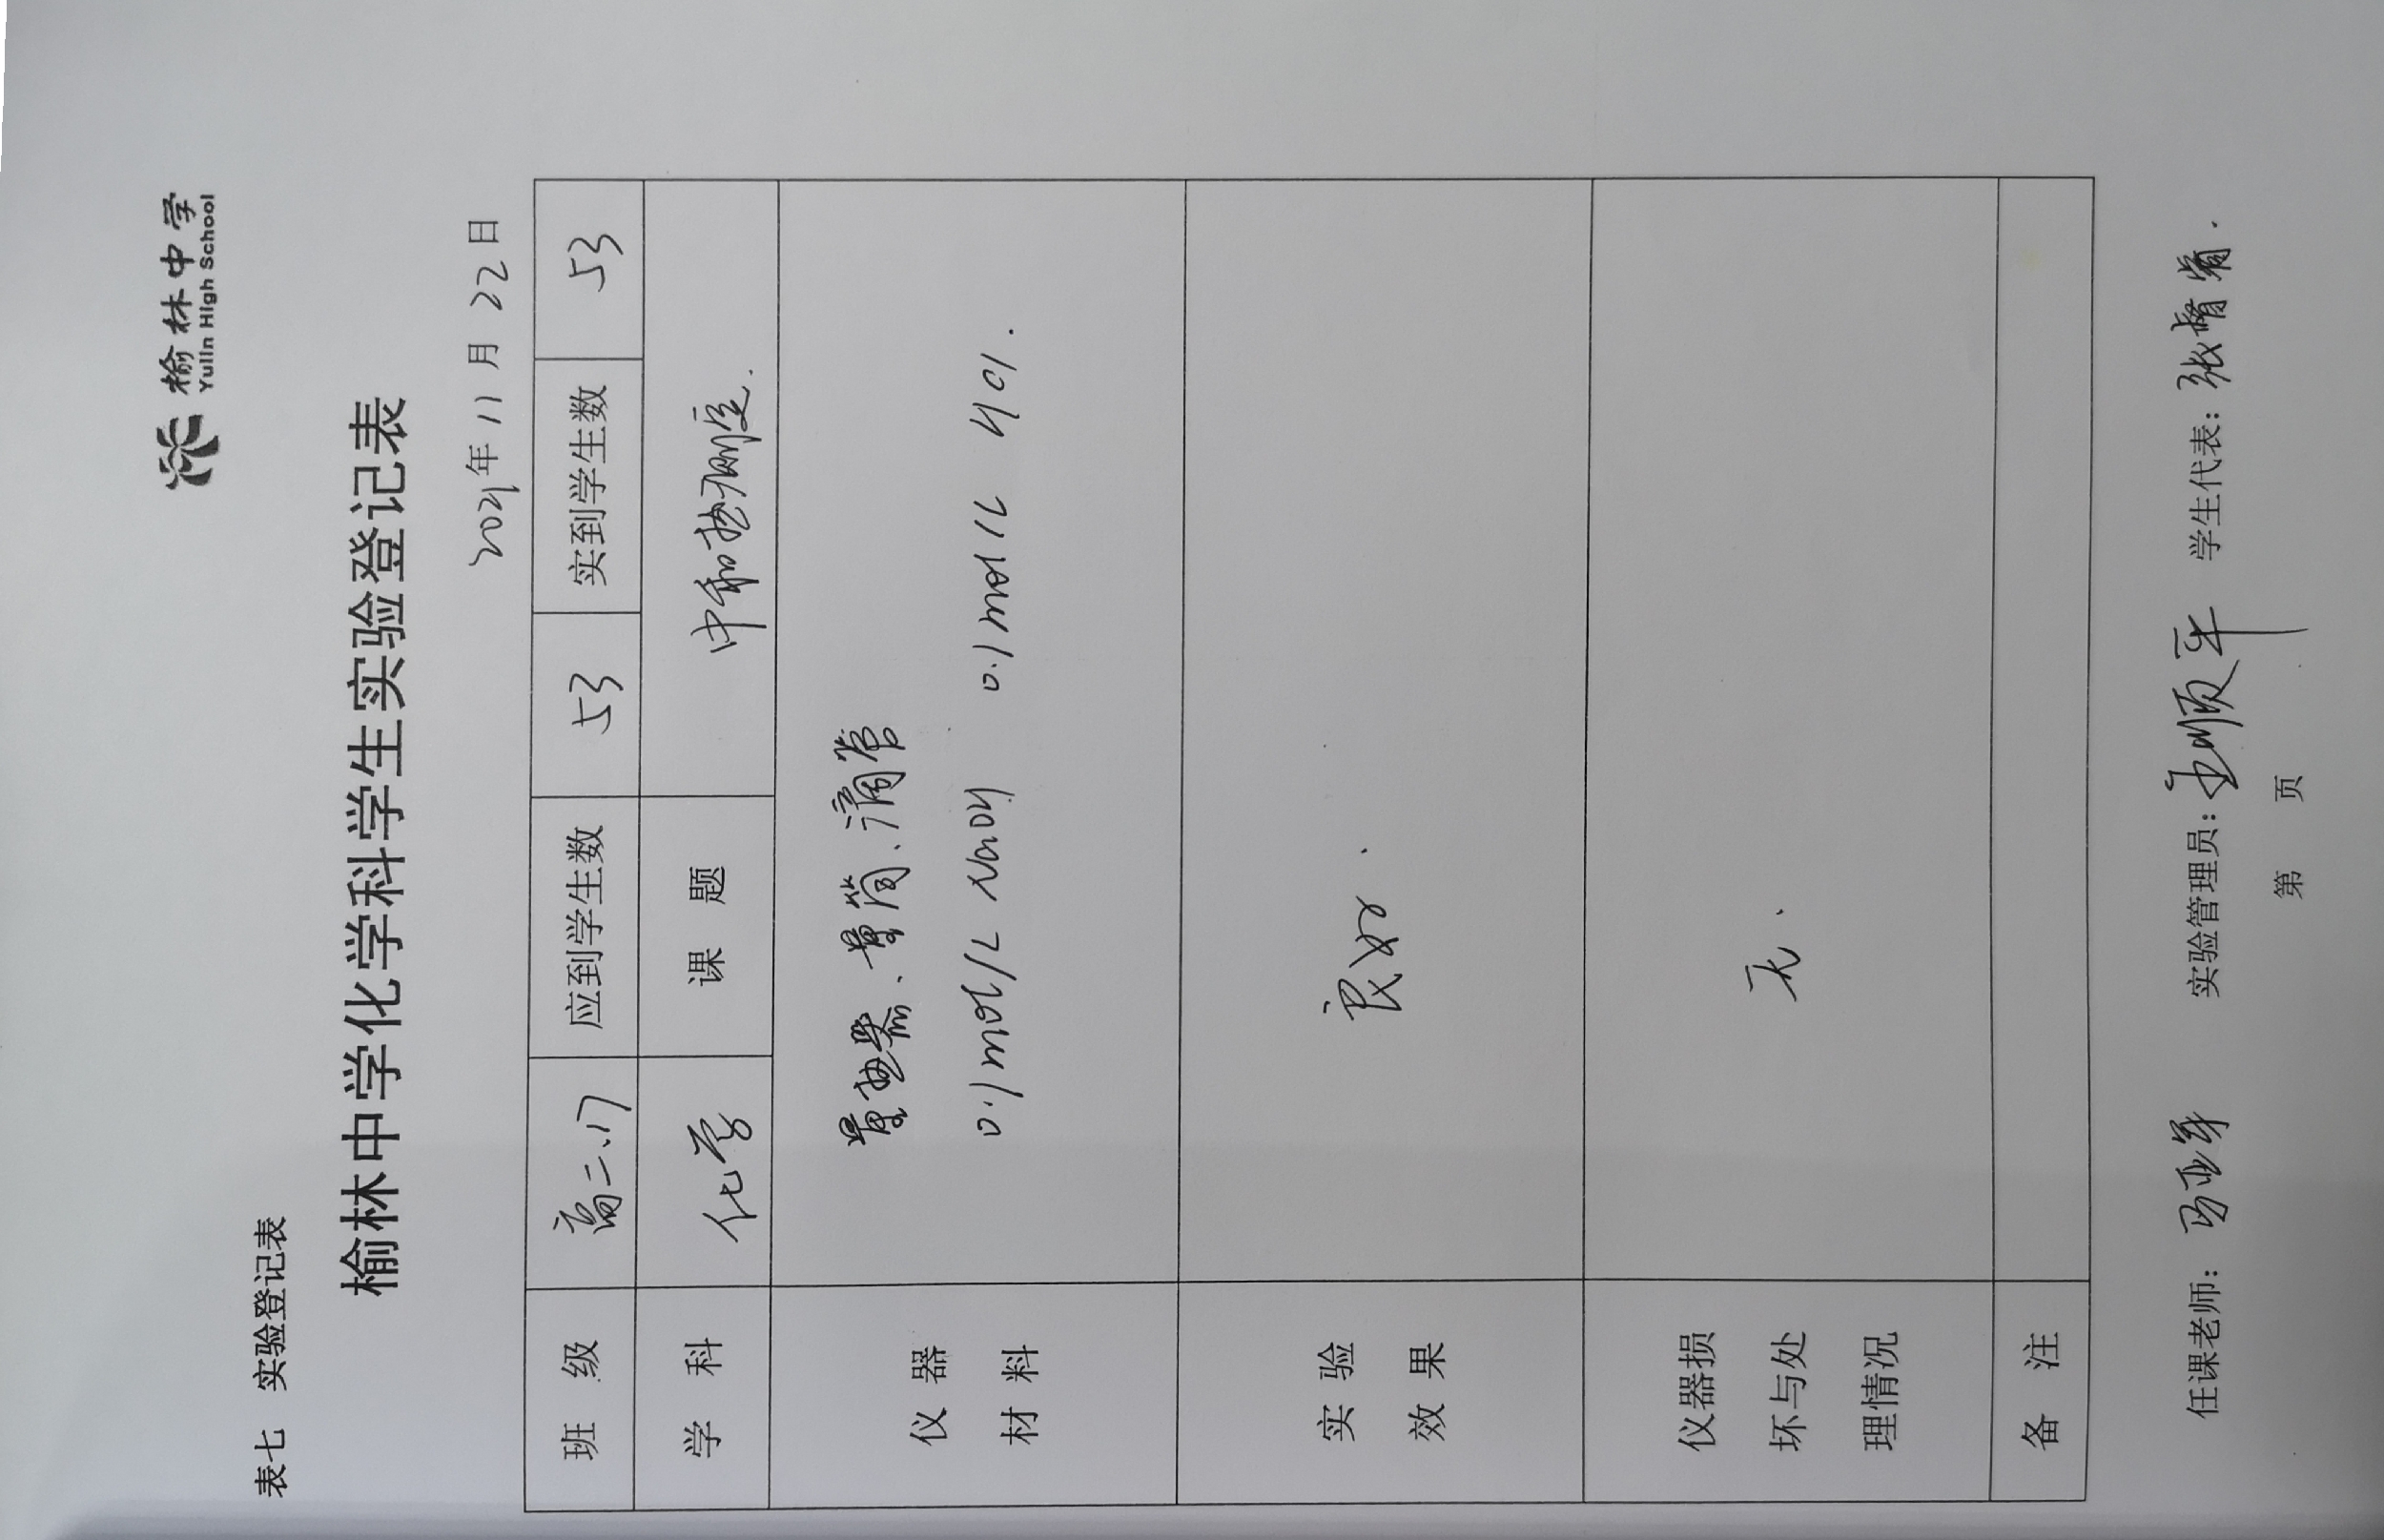 榆林中学
Yulin High School
表七 实验登记表
榆林中学化学学科学生实验登记表
2021年11月22日
班 级 高二、17 应到学生数 53 实到学生数 53
学 科 化学 课 题 中和热测定.
仪 器 材 料 量热器、量筒、滴管
0.1mol/L NaOH 0.1mol/L HCl.
实 验 效 果 良好.
仪器损坏与处理情况 无.
备 注
任课老师: 实验管理员: 王顺平 学生代表:
第 页